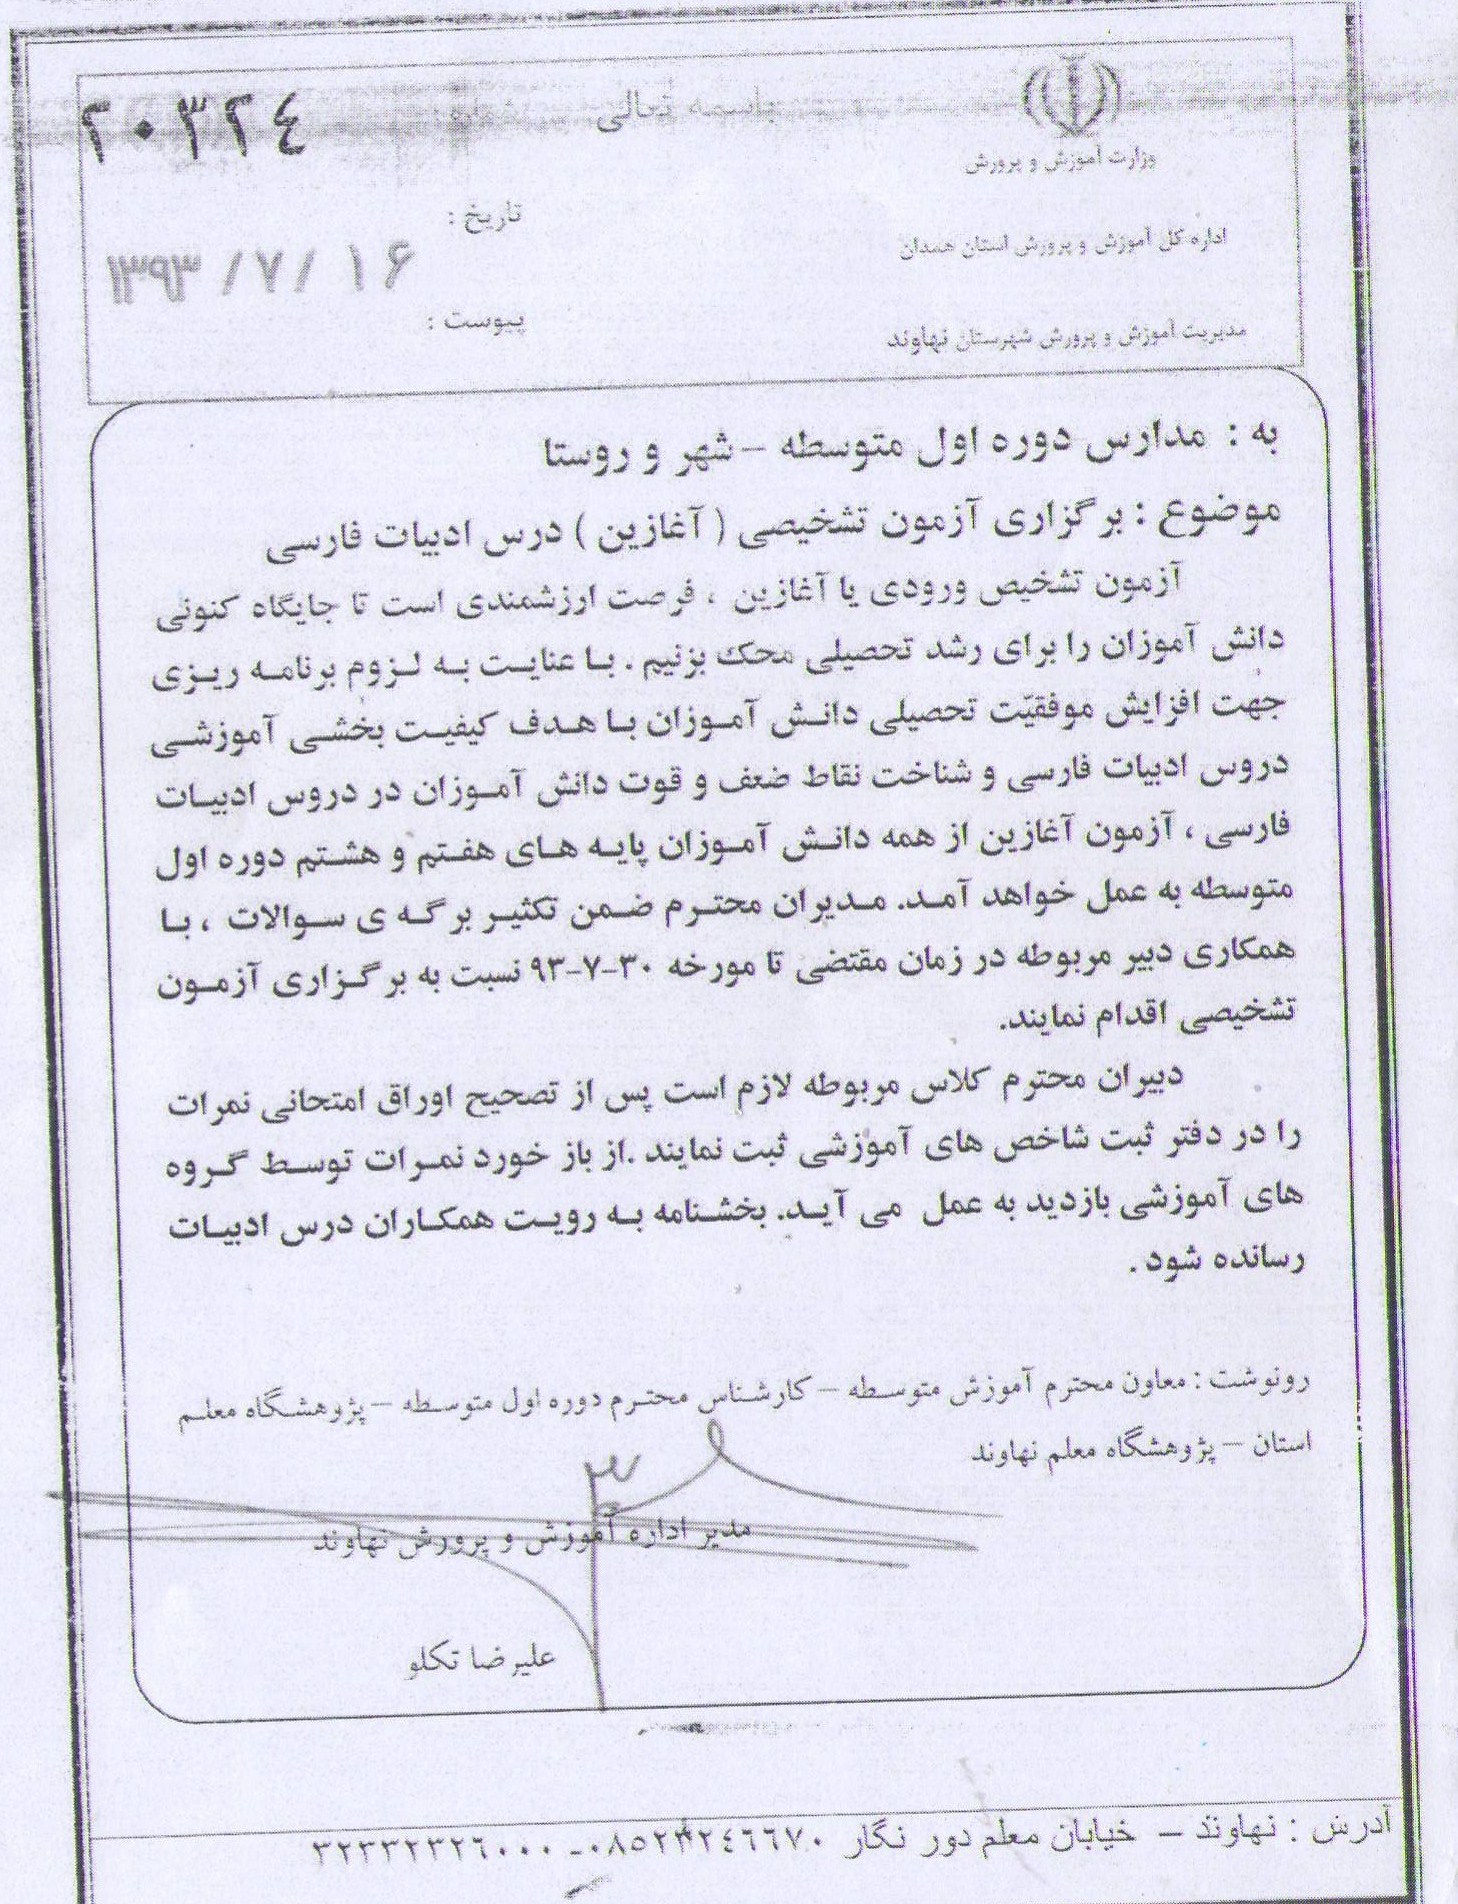 باسمه تعالی
۲۰۳۲٤
وزارت آموزش و پرورش
تاریخ :
اداره کل آموزش و پرورش استان همدان
۱۳۹۳ / ۷ / ۱۶
پیوست :
مدیریت آموزش و پرورش شهرستان نهاوند
به : مدارس دوره اول متوسطه – شهر و روستا
موضوع : برگزاری آزمون تشخیصی ( آغازین ) درس ادبیات فارسی
آزمون تشخیص ورودی یا آغازین ، فرصت ارزشمندی است تا جایگاه کنونی
دانش آموزان را برای رشد تحصیلی محک بزنیم . با عنایت به لزوم برنامه ریزی
جهت افزایش موفقیّت تحصیلی دانش آموزان با هدف کیفیت بخشی آموزشی
دروس ادبیات فارسی و شناخت نقاط ضعف و قوت دانش آموزان در دروس ادبیات
فارسی ، آزمون آغازین از همه دانش آموزان پایه های هفتم و هشتم دوره اول
متوسطه به عمل خواهد آمد. مدیران محترم ضمن تکثیر برگه ی سوالات ، با
همکاری دبیر مربوطه در زمان مقتضی تا مورخه ۳۰-۷-۹۳ نسبت به برگزاری آزمون
تشخیصی اقدام نمایند.
دبیران محترم کلاس مربوطه لازم است پس از تصحیح اوراق امتحانی نمرات
را در دفتر ثبت شاخص های آموزشی ثبت نمایند .از باز خورد نمرات توسط گروه
های آموزشی بازدید به عمل می آید. بخشنامه به رویت همکاران درس ادبیات
رسانده شود .
رونوشت : معاون محترم آموزش متوسطه – کارشناس محترم دوره اول متوسطه – پژوهشگاه معلم
استان – پژوهشگاه معلم نهاوند
مدیر اداره آموزش و پرورش نهاوند
علیرضا تکلو
آدرس : نهاوند – خیابان معلم دور نگار